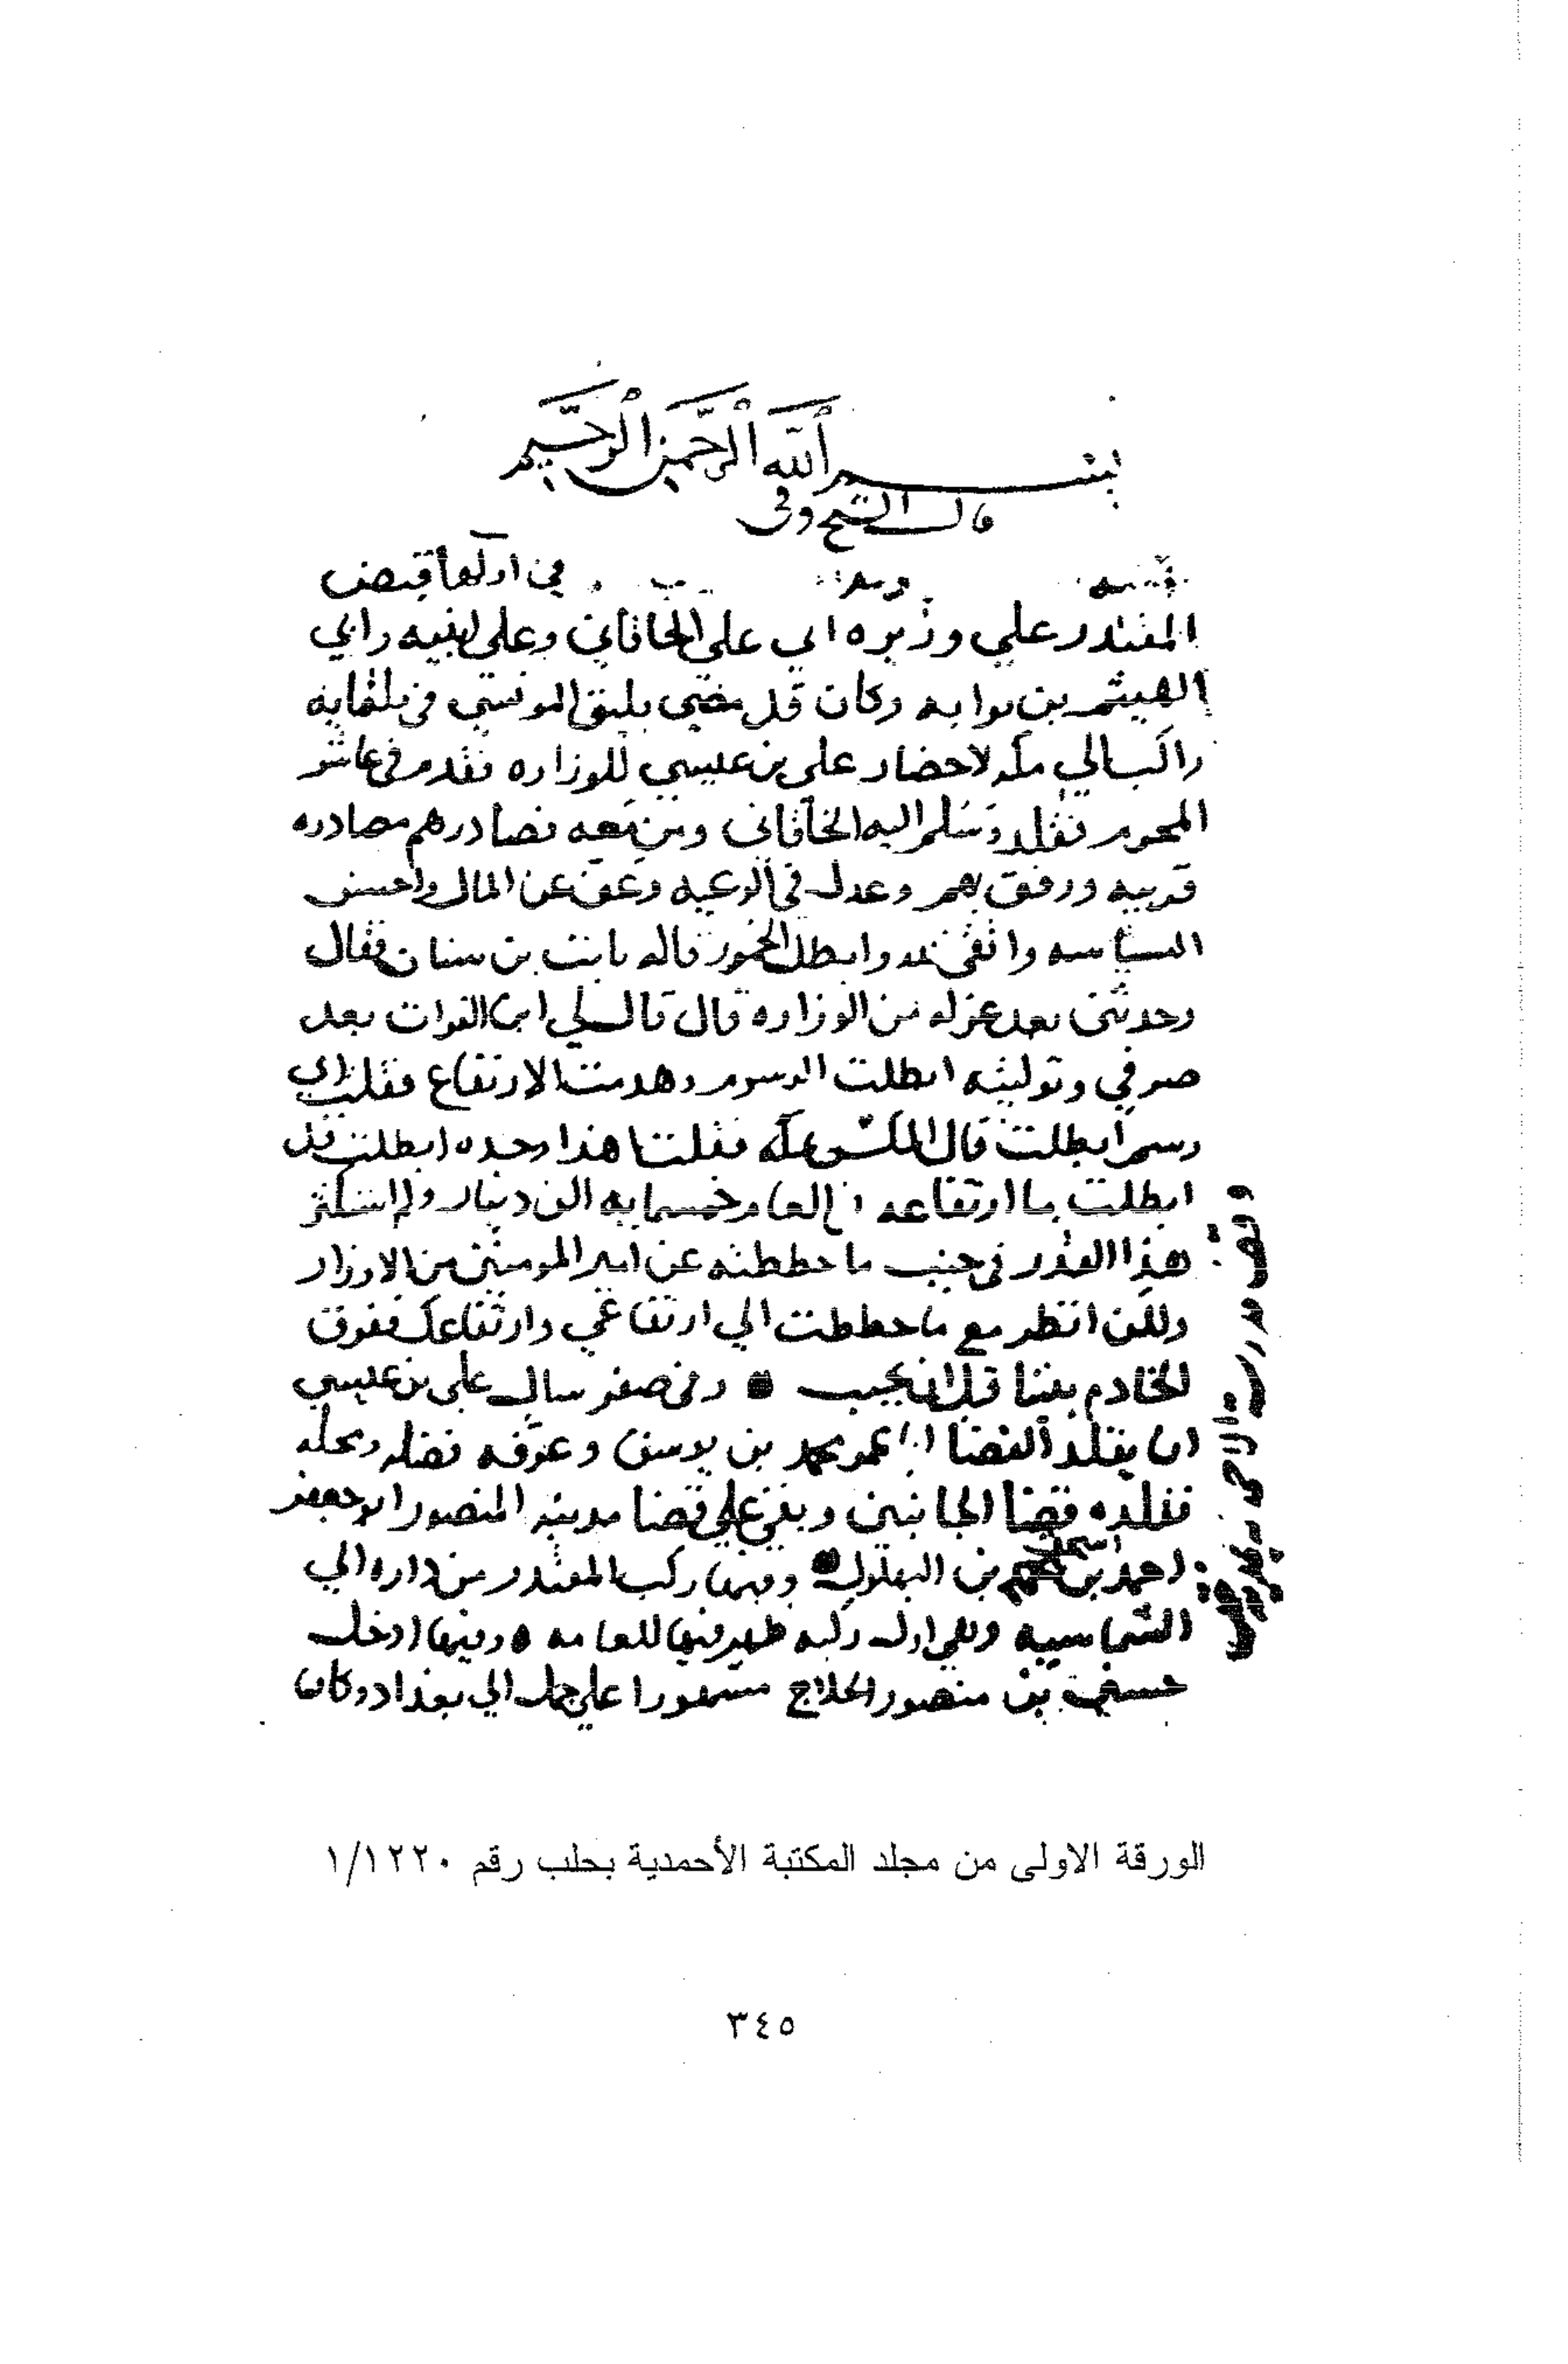 بسم الله الرحمن الرحيم
قال الشيخ وفي
في اولها قبض
المقتدر علي وزيره ابي علي الخاقاني وعلي ابنيه وابي
الهيثم بن ثوابه وكان قد مضي يلبق المونسي في ثلثمايه
راكب الي مكه لاحضار علي بن عيسي للوزاره فقدم في عاشر
المحرم فقلد وسلم اليه الخاقاني ومن معه فصادرهم مصادره
قريبه ورفق بهم وعدل في الرعيه وعف عن المال واحسن
السياسه واتقي الله وابطل الخمور قاله ثابت بن سنان فقال
وحدثني بعد عزله من الوزاره قال قال لي ابن الفرات بعد
صرفي وتوليته ابطلت الرسوم وهدمت الارتفاع فقلت اي
رسم ابطلت قال المكس بمكه فقلت هذا وحده ابطلت قد
ابطلت ما ارتفاعه في العام خمسمايه الف دينار ولم استكثر
هذا القدر في جنب ما حططته عن امير المومنين من الاوزار
ولكن انظر مع ما حططت الي ارتفاعي وارتفاعك ففرق
الخادم بيننا قبل ان يجيب وفي صفر سال علي بن عيسي
ان يقلد القضا ابا عمر محمد بن يوسف وعرفه فضله ومحله
فقلده قضا الجانبين وبقي علي قضا مدينه المنصور ابو جعفر
احمد بن اسحق بن البهلول وفيها ركب المقتدر من داره الي
الشماسيه وهي اول ركبه ظهر فيها للعامه وفيها ادخل
حسين بن منصور الحلاج مشهورا علي جمل الي بغداد وكان
وقف مدرسة الاحمدية
الورقة الاولى من مجلد المكتبة الأحمدية بحلب رقم ١/١٢٢٠
٣٤٥